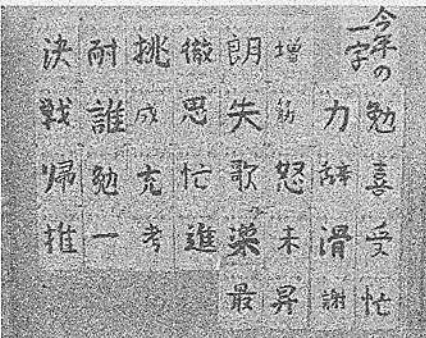 今年の
一字
勉喜受忙
力辞滑謝
増筋怒未昇
朗失歌最
思忙進
挑成充考
耐誰勉一
決戦帰推